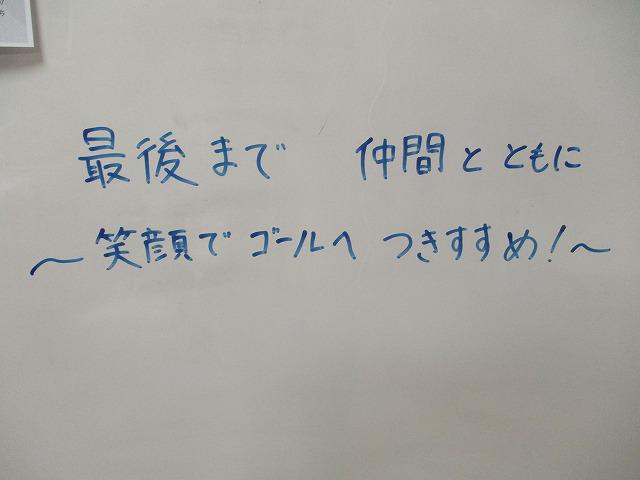 最後まで 仲間とともに
～笑顔でゴールへ つきすすめ！～